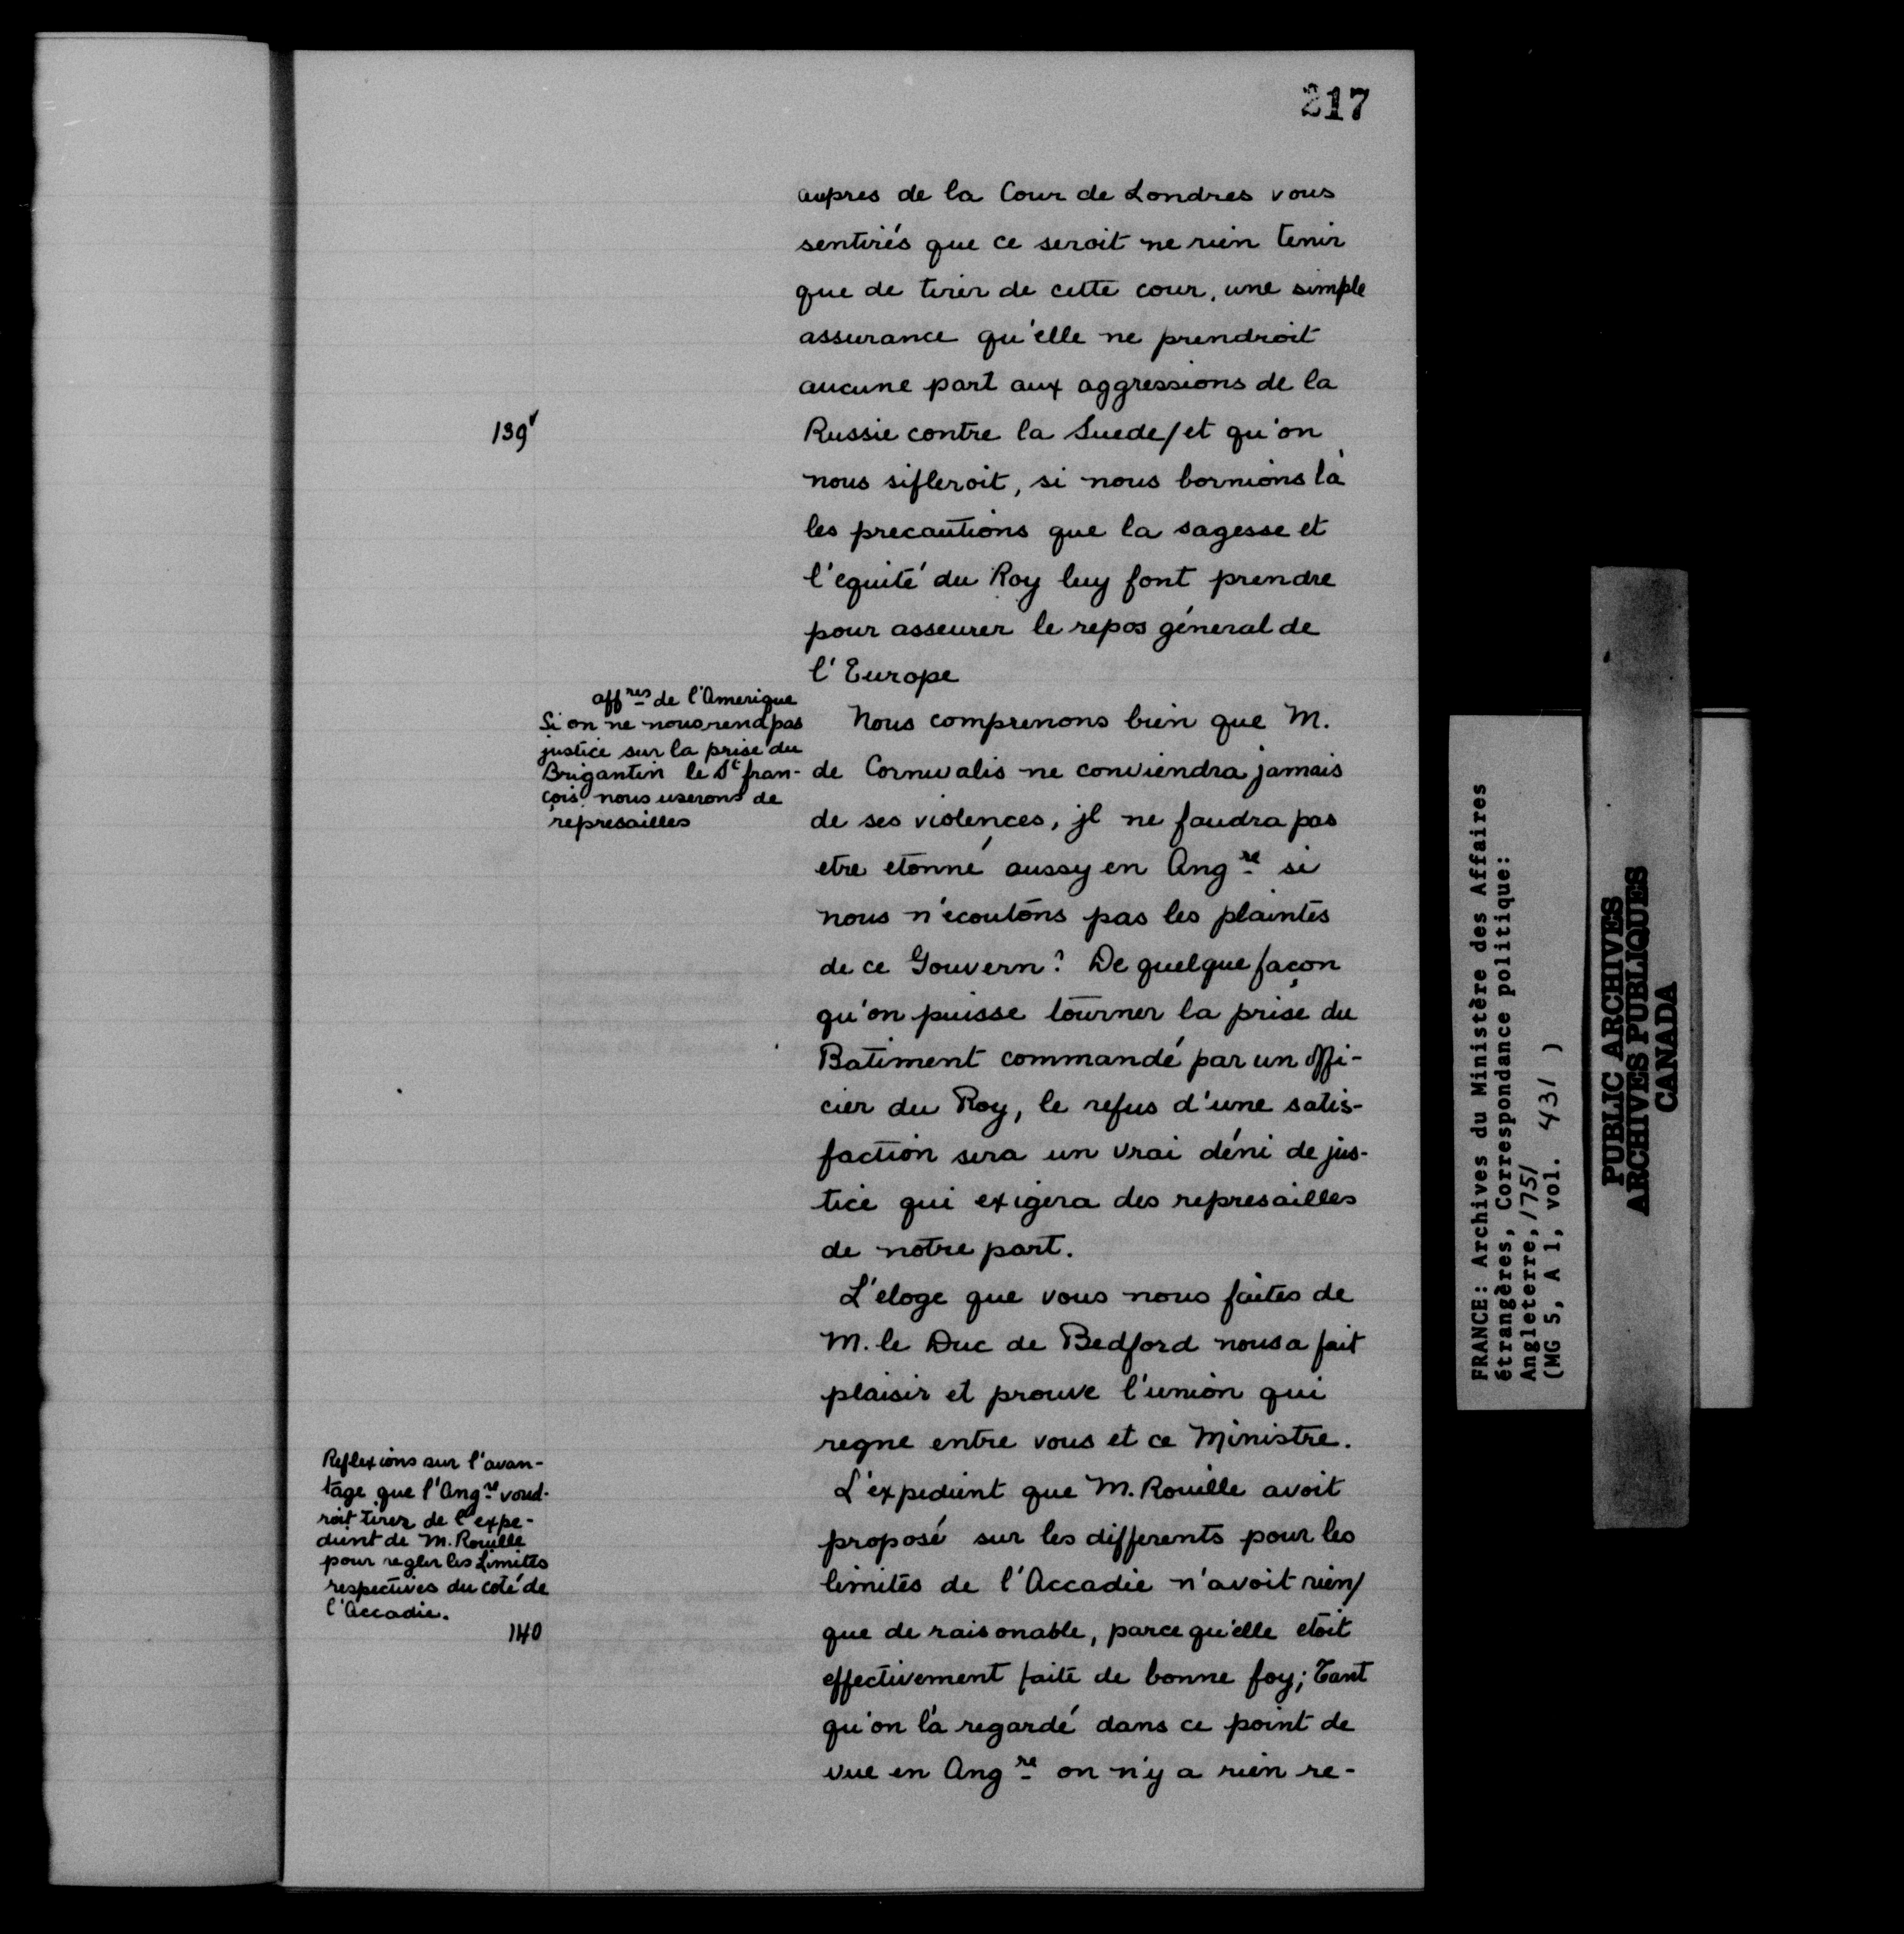 217
aupres de la Cour de Londres vous
sentirés que ce seroit ne rien tenir
que de tirer de cette cour, une simple
assurance qu'elle ne prendroit
aucune part aux aggressions de la
139v
Russie contre la Suede/et qu'on
nous sifleroit, si nous bornions là
les precautions que la sagesse et
l'equité du Roy luy font prendre
pour asseurer le repos géneral de
l'Europe
affres de l'Amerique
Si on ne nous rend pas
justice sur la prise du
Brigantin le St fran-
çois nous userons de
represailles
Nous comprenons bien que M.
de Cornwalis ne conviendra jamais
de ses violences, jl ne faudra pas
etre etonné aussy en Angre si
nous n'écoutons pas les plaintes
de ce Gouvern? De quelque façon
qu'on puisse tourner la prise du
Batiment commandé par un offi-
cier du Roy, le refus d'une satis-
faction sera un vrai déni de jus-
tice qui exigera des represailles
de notre part.
L'éloge que vous nous faites de
M. le Duc de Bedford nous a fait
plaisir et prouve l'union qui
regne entre vous et ce Ministre.
Reflexions sur l'avan-
tage que l'Angre voud-
roit tirer de l'expe-
dient de M. Rouille
pour regler les Limites
respectives du coté de
l'Accadie.
140
L'expedient que M. Rouille avoit
proposé sur les differents pour les
limites de l'Accadie n'avoit rien/
que de raisonable, parce qu'elle etoit
effectivement faite de bonne foy; Tant
qu'on l'a regardé dans ce point de
vue en Angre on n'y a rien re-
FRANCE: Archives du Ministère des Affaires
étrangères, Correspondance politique:
Angleterre, 1751
(MG 5, A 1, vol. 431 )
PUBLIC ARCHIVES
ARCHIVES PUBLIQUES
CANADA